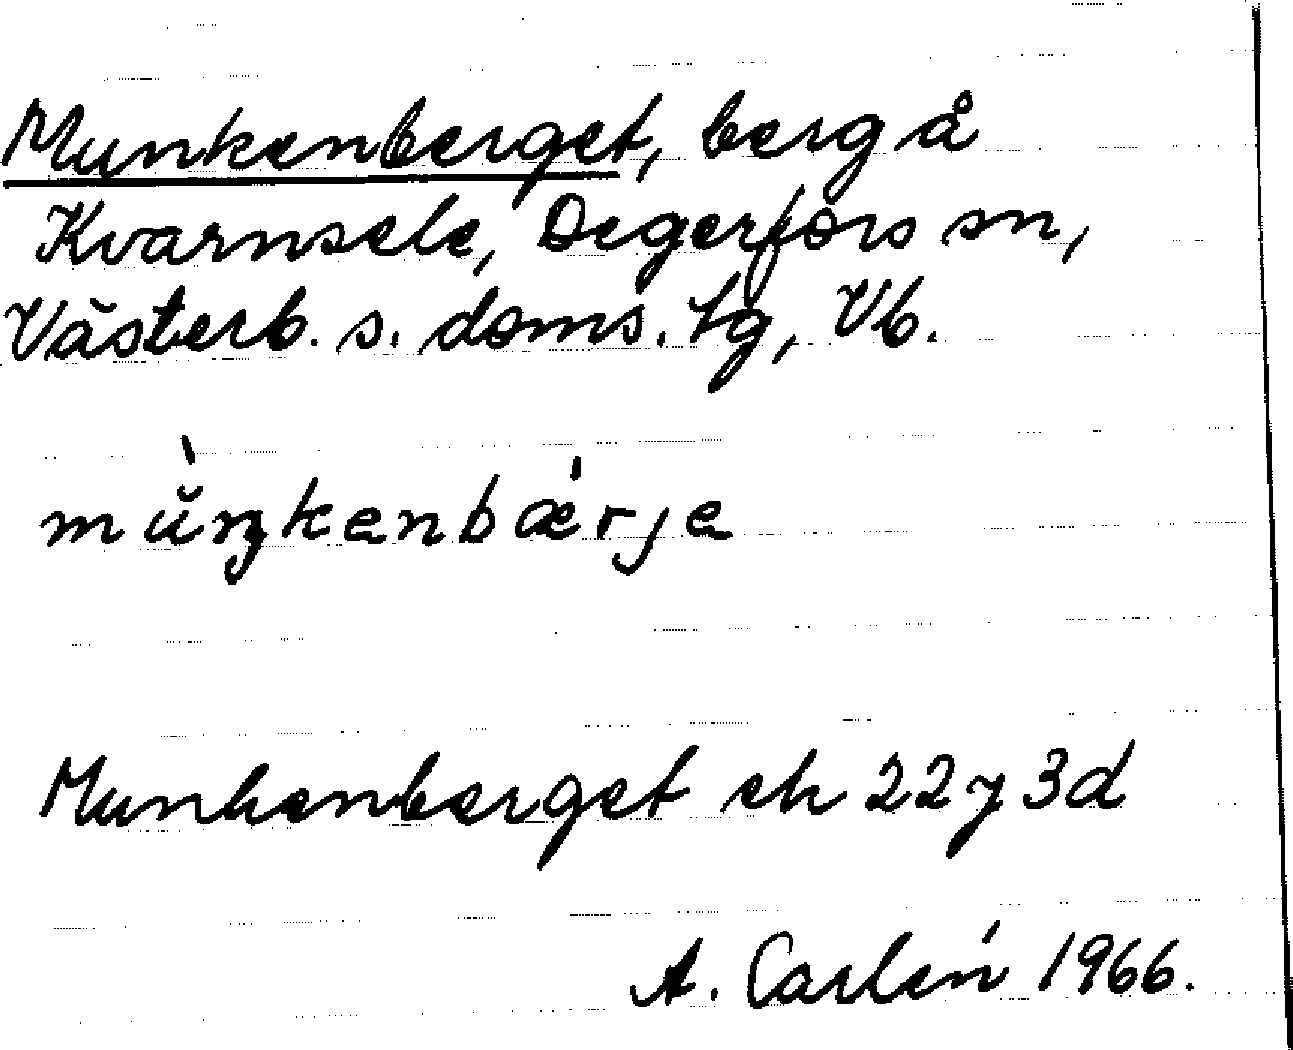 Munkenberget, berg å
Kvarnsele, Degerfors sn,
Västerb. s. doms. tg, Vb.
mu̇̆ŋkenbærje
Munkenberget ek 22 y 3d
A. Carlén 1966.